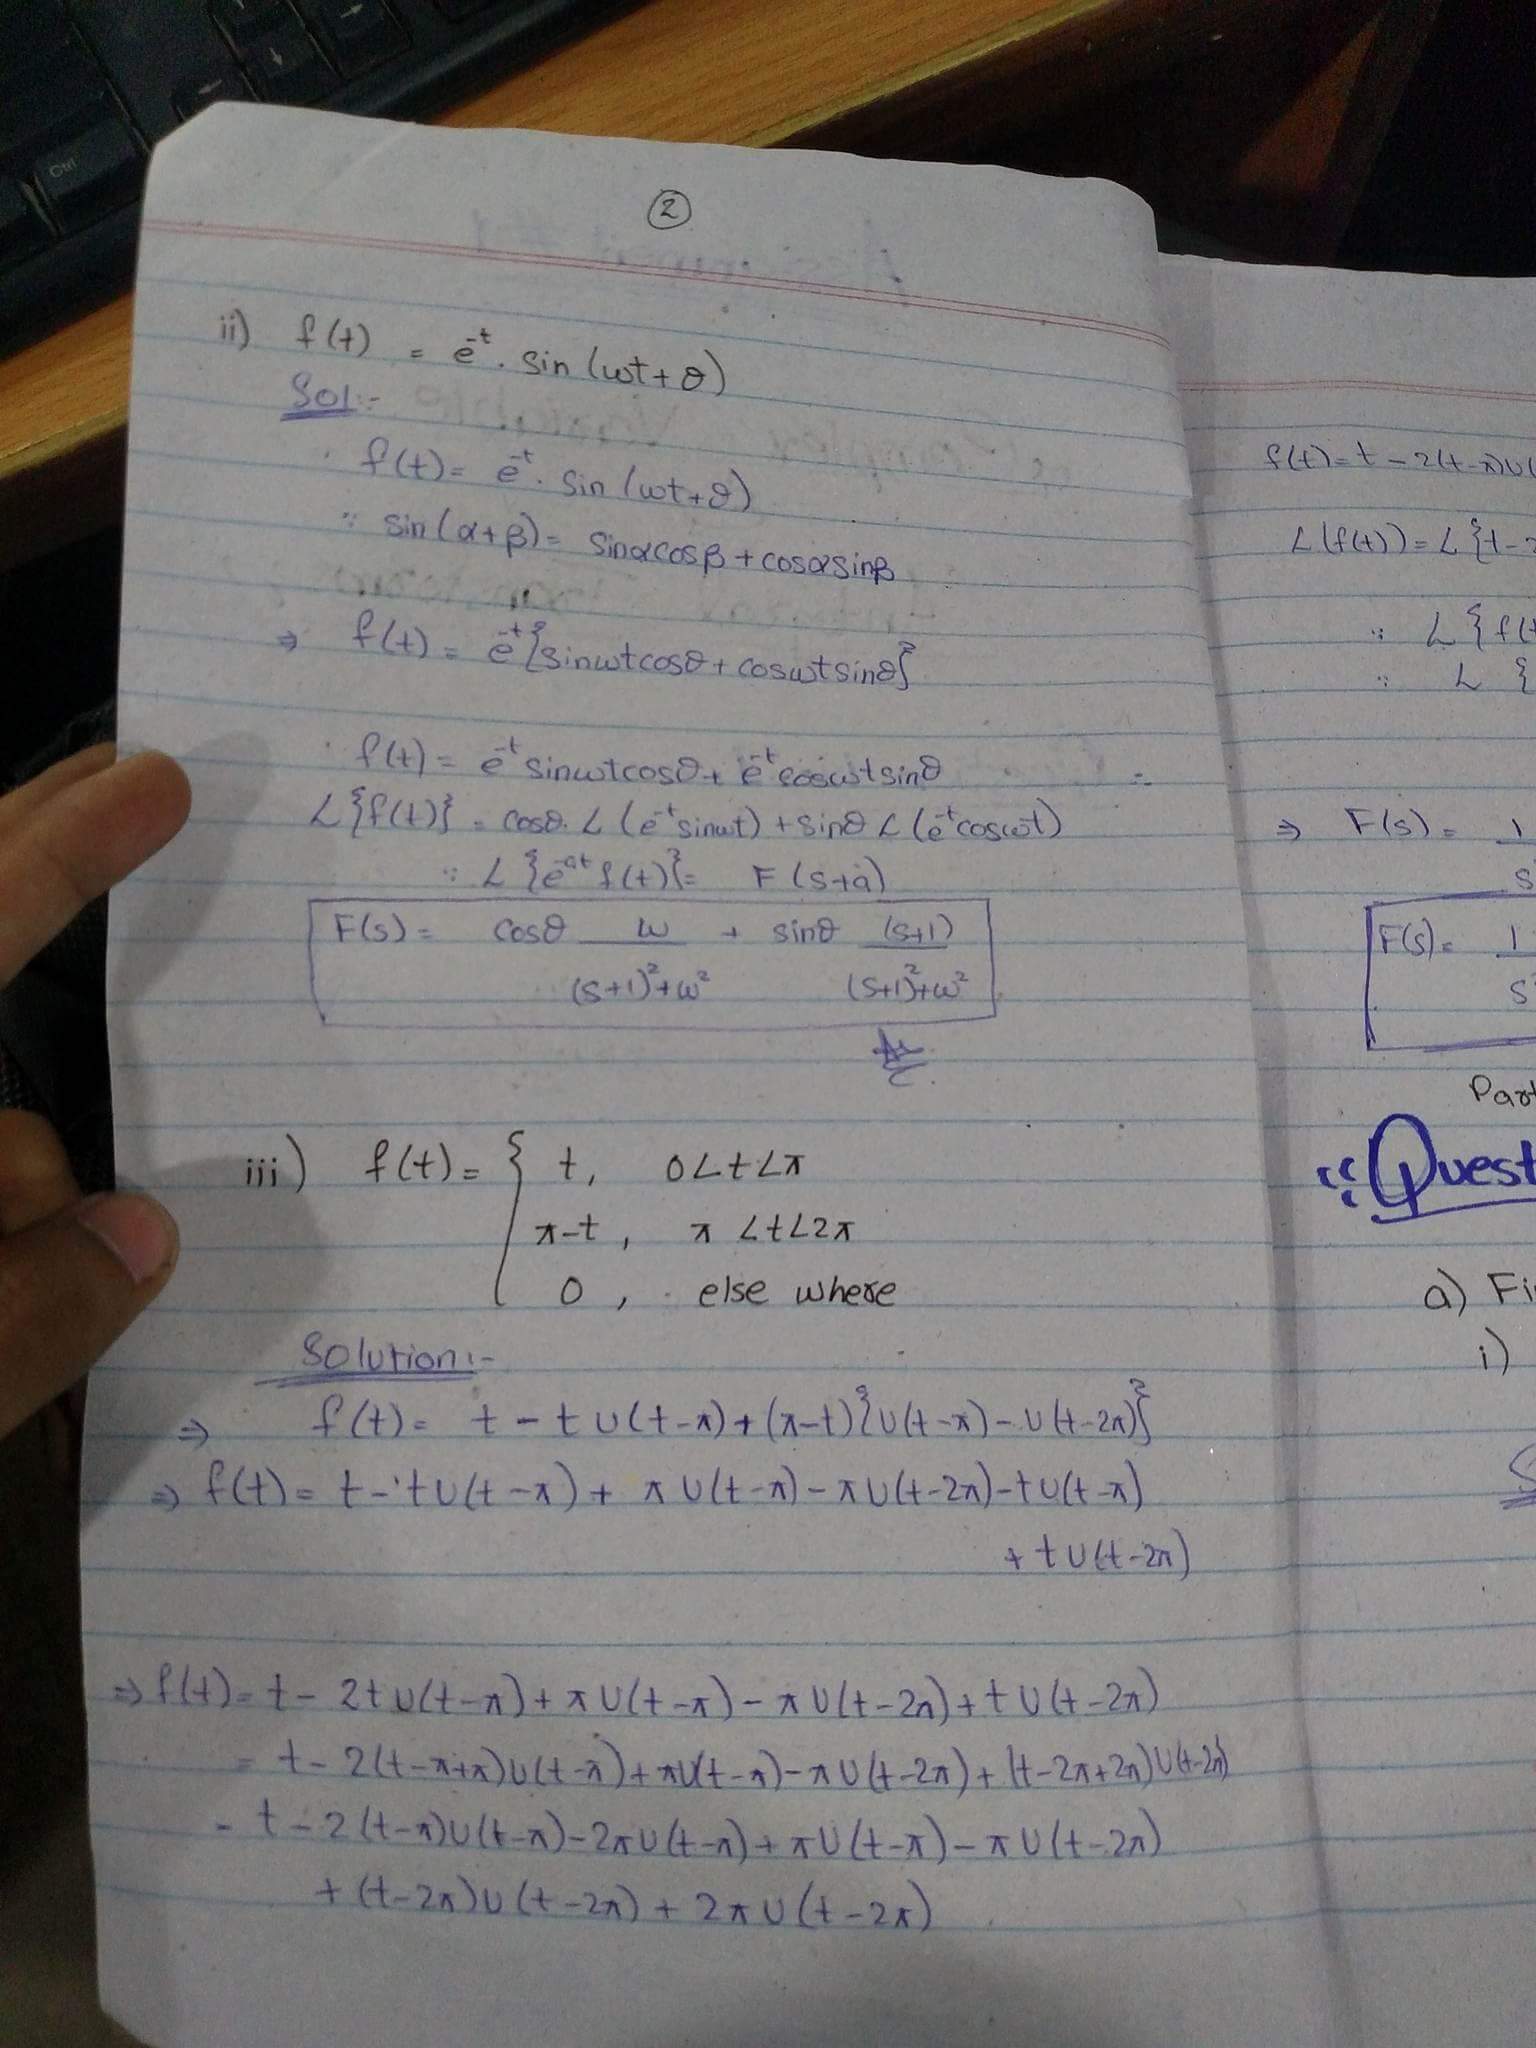 Ctrl
2
ii) f(t) = e^-t . sin(ωt+θ)
Sol:-
f(t) = e^-t . sin(ωt+θ)
∵ sin(α+β) = sinαcosβ + cosαsinβ
⇒ f(t) = e^-t {sinωtcosθ + cosωtsinθ}
f(t) = e^-t sinωtcosθ + e^-t cosωtsinθ
L{f(t)} = cosθ.L(e^-t sinωt) + sinθ L(e^-t cosωt)
∵ L{e^-at f(t)} = F(s+a)
F(s) = cosθ ω/((s+1)²+ω²) + sinθ (s+1)/((s+1)²+ω²)
iii) f(t) = { t, 0<t<π
π-t, π<t<2π
0, else where
Solution:-
⇒ f(t) = t - tU(t-π) + (π-t){U(t-π) - U(t-2π)}
⇒ f(t) = t - tU(t-π) + πU(t-π) - πU(t-2π) - tU(t-π)
+ tU(t-2π)
⇒ f(t) = t - 2tU(t-π) + πU(t-π) - πU(t-2π) + tU(t-2π)
= t - 2(t-π+π)U(t-π) + πU(t-π) - πU(t-2π) + (t-2π+2π)U(t-2π)
= t - 2(t-π)U(t-π) - 2πU(t-π) + πU(t-π) - πU(t-2π)
+ (t-2π)U(t-2π) + 2πU(t-2π)
f(t) = t - 2(t-π)U(
L(f(t)) = L{t-2
∵ L{f(t
∵ L {
⇒ F(s) = 1
s
F(s) = 1
s
Part
"Quest
a) Fi
i)